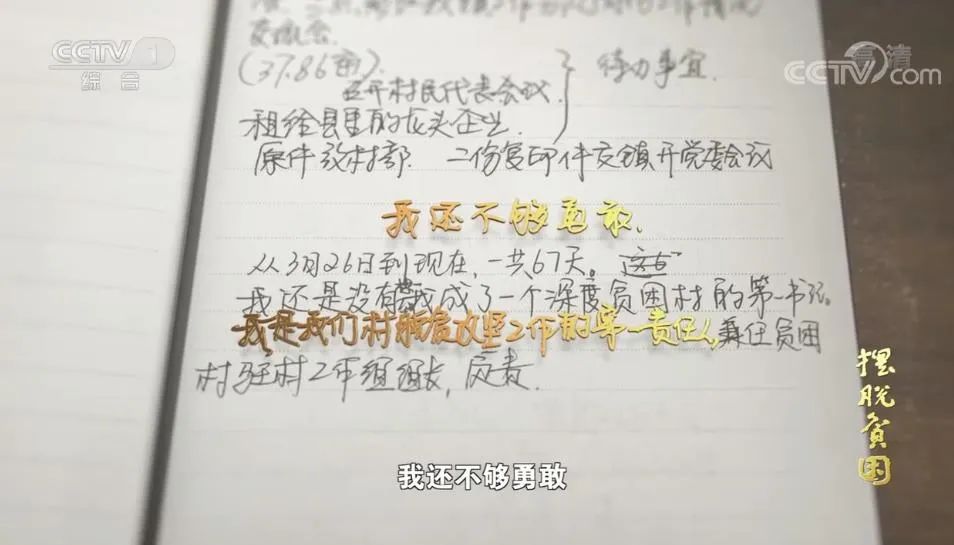 CCTV 1
综合
高清
CCTV.com
(37.86亩).
召开村民代表会议.
待办事宜.
租给县里的龙头企业.
原件放村部. 二份复印件交镇开党委会议
我还不够勇敢.
从3月26日到现在,一共67天。这
我还是没有 成了一个深度贫困村的第一书记。
我是我们村脱贫攻坚工作的第一责任人,兼任贫困
村驻村工作组组长, 应责.
摆脱贫困
我还不够勇敢